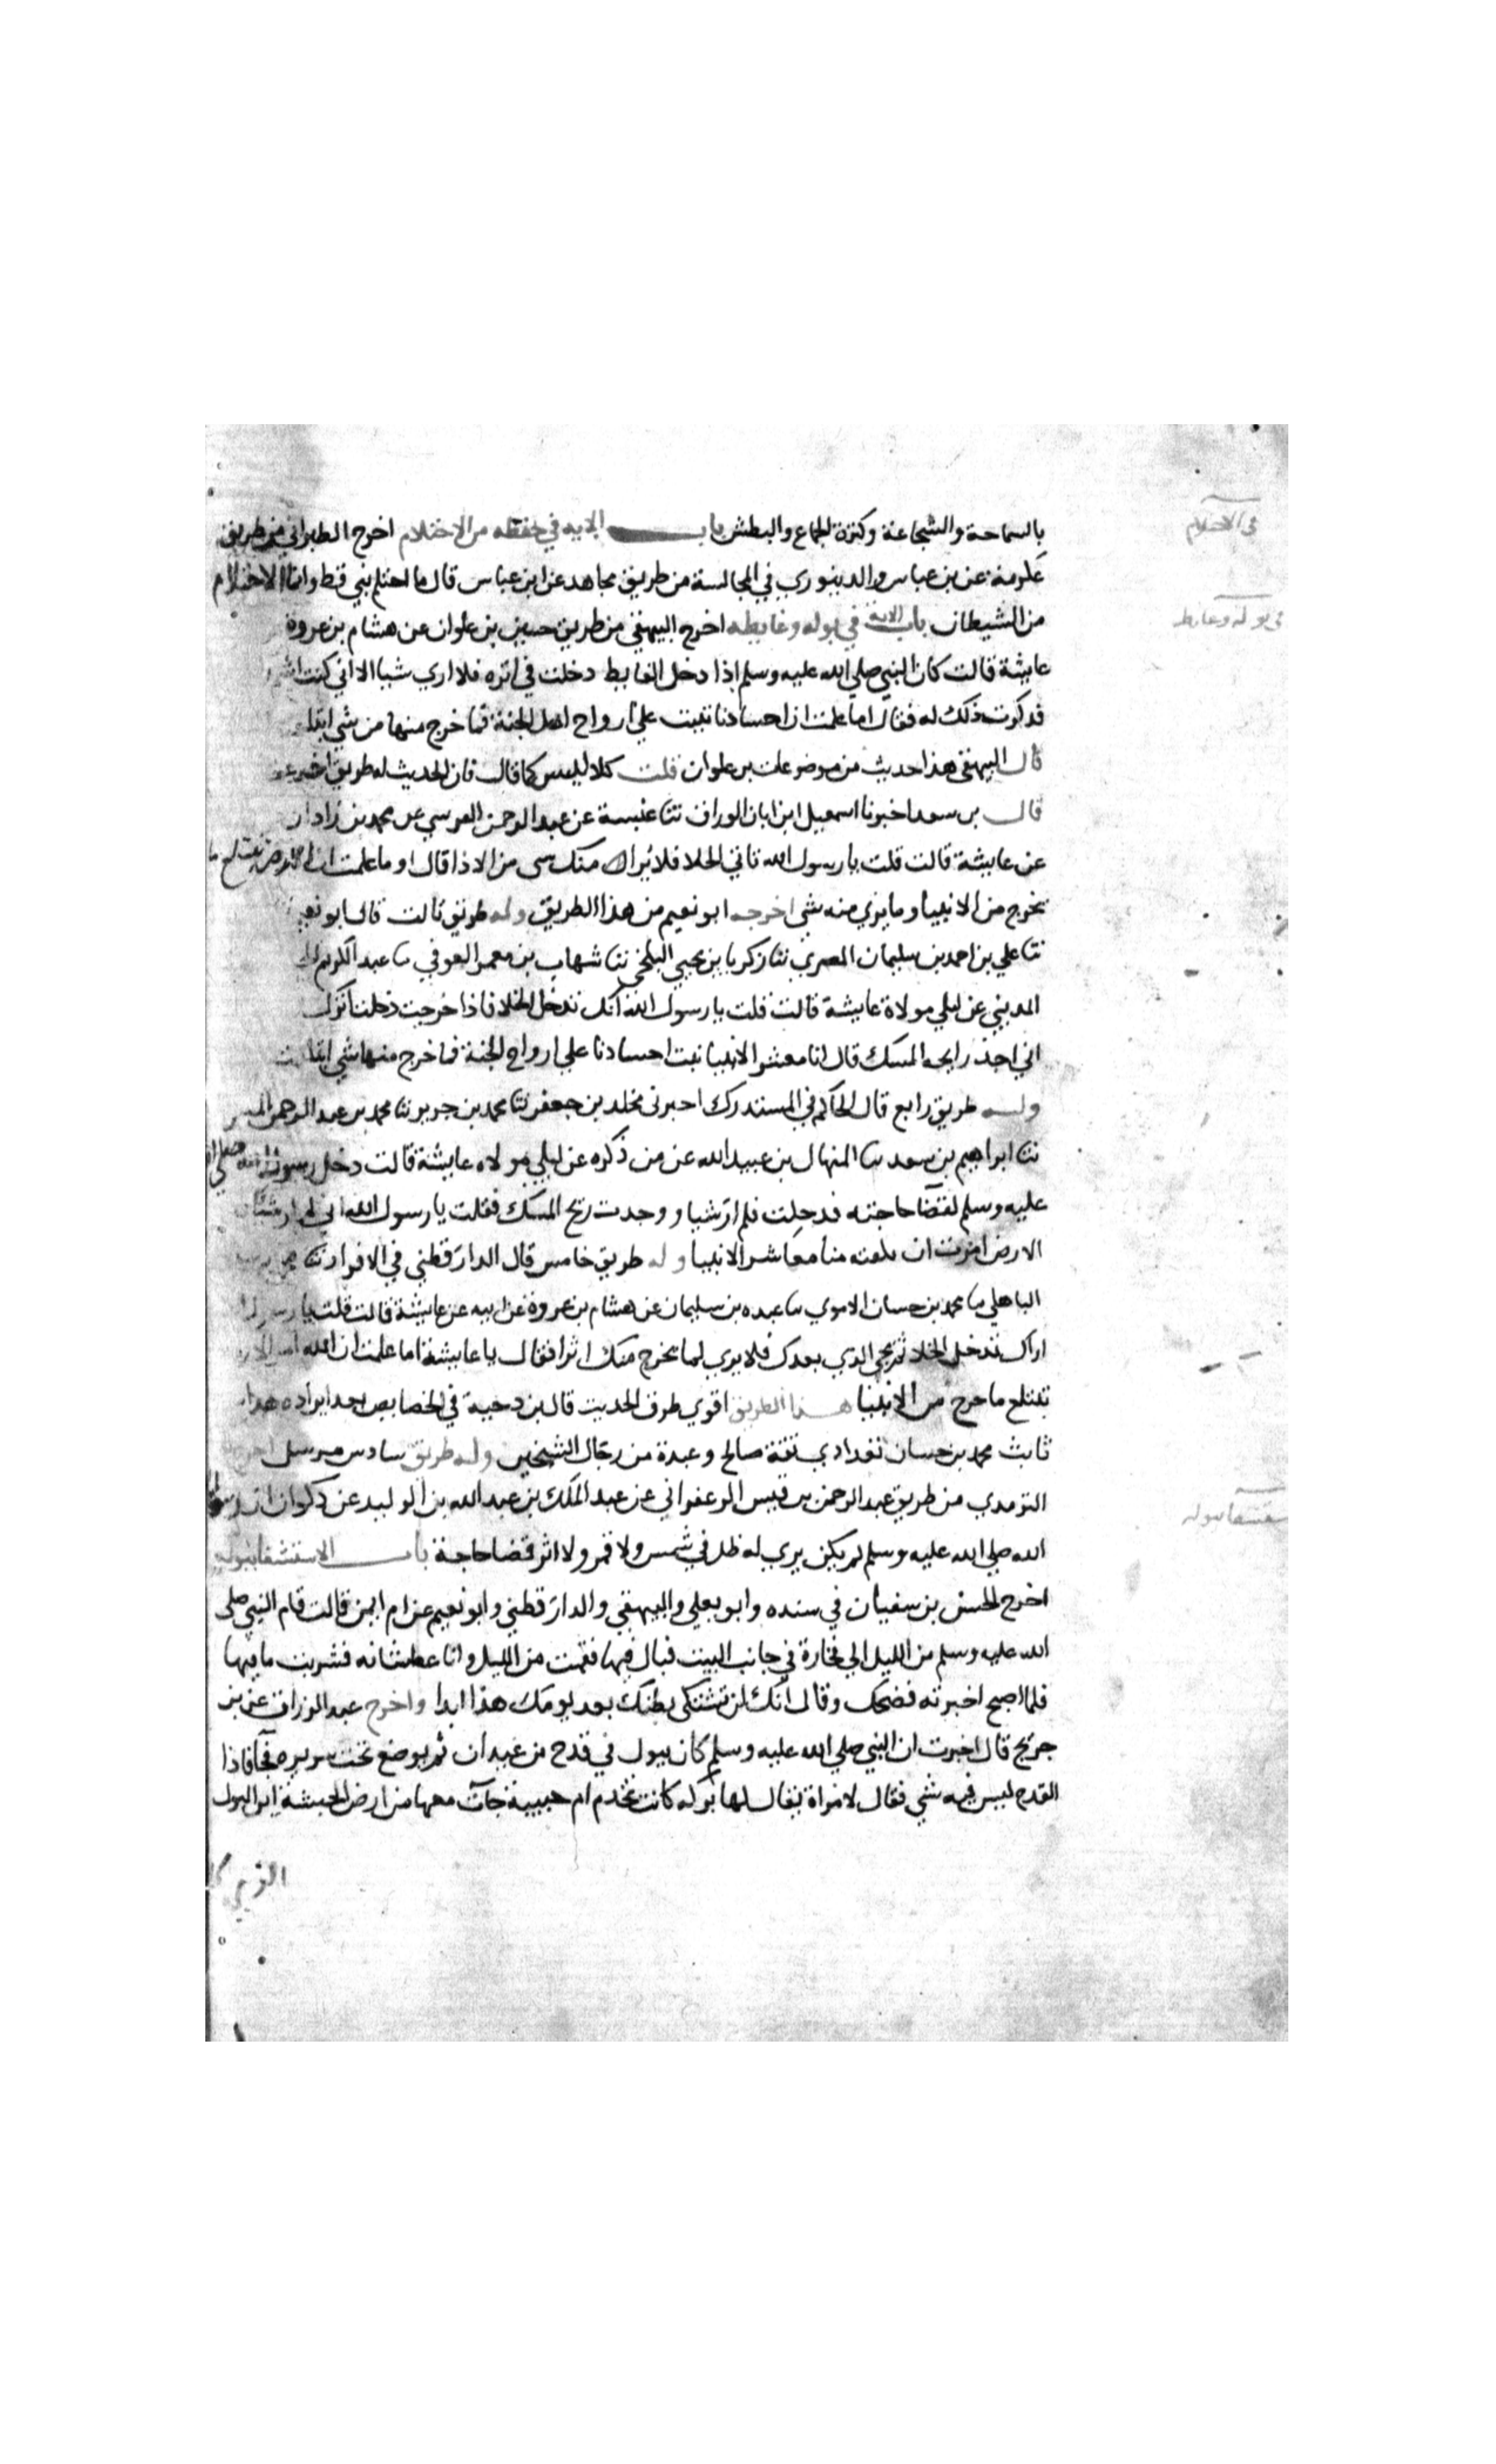 في الاحتلام
بالسماحة والشجاعة وكثرة الجماع والبطش باب الايه في حفظه من الاحتلام اخرج الطبراني من طريق
عكرمة عن بن عباس والدينوري في المجالسة من طريق مجاهد عن ابن عباس قال ما احتلم نبي قط وانما الاحتلام
في بوله وغايطه
من الشيطان باب الاية في بوله وغايطه اخرج البيهقي من طريق حسين بن علوان عن هشام بن عروة
عايشة قالت كان النبي صلي الله عليه وسلم اذا دخل الغايط دخلت في اثره فلا اري شيا الا اني كنت اشم
فذكرت ذلك له فقال اما علمت ان اجسادنا تنبت علي ارواح اهل الجنة فما خرج منها من شي ابتلعته
قال البيهقي هذا حديث من موضوعات بن علوان قلت كلا ليس كما قال فان الحديث له طريق اخر عن
قال بن سعد اخبرنا اسمعيل ابن ابان الوراق ثنا عنبسة عن عبد الرحمن القرسي عن محمد بن زادان
عن عايشة قالت قلت يا رسول الله تاتي الخلا فلا يُراك منك سى من الاذا قال او ما علمت ان الارض تبتلع ما
يخرج من الانبيا وما يري منه شي اخرجه ابو نعيم من هذا الطريق وله طريق ثالث قال ابو نعيم
ثنا علي بن احمد بن سليمان المصري ثنا زكريا بن يحيي البلخي ثنا شهاب بن معمر العوفي ثنا عبد الكريم
المديني عن ليلي مولاة عايشة قالت قلت يا رسول الله انك تدخل الخلا فاذا خرجت دخلت اثرك
اني اجد رايحه المسك قال انا معشر الانبيا تنبت اجسادنا علي ارواح الجنة فما خرج منها شي ابتلعته
وله طريق رابع قال الحاكم في المستدرك اخبرنى مخلد بن جعفر ثنا محمد بن جرير ثنا محمد بن عبد الرحمن
ثنا ابراهيم بن سعد ثنا المنهال بن عبيد الله عن من ذكره عن ليلي مولاه عايشة قالت دخل رسول الله صلي الله
عليه وسلم لقضا حاجته فدخلت فلم ار شيا ووجدت ريح المسك فقلت يا رسول الله اني لم ار شيئا
الارض امرت ان تكفته منا معاشر الانبيا وله طريق خامس قال الدارقطني في الافراد ثنا
الباهلي ثنا محمد بن حسان الاموي ثنا عبده بن سليمان عن هشام بن عروة عن ابيه عن عايشة قالت قلت يا رسول الله
اراك تدخل الخلا ثم يجي الذي بعدك فلا يري لما يخرج منك اثرا فقال يا عايشة اما علمت ان الله امر الارض
تبتلع ما خرج من الانبيا هذا الطريق اقوي طرق الحديث قال بن دحية في الخصايص بعد ايراده هذا
ثابت محمد بن حسان بغدادي ثقة صالح وعبدة من رجال الشيخين وله طريق سادس مرسل اخرج
استشفا ببوله
الترمدي من طريق عبد الرحمن بن قيس الزعفراني عن عبد الملك بن عبد الله بن الوليد عن ذكوان ان رسول
الله صلي الله عليه وسلم لم يكن يري له ظل في شمس ولا قمر ولا اثر قضا حاجة باب الاستشفا ببوله
اخرج الحسن بن سفيان في سنده وابو يعلي والبيهقي والدارقطني وابو نعيم عن ام ايمن قالت قام النبي صلى
الله عليه وسلم من الليل الي فخارة في جانب البيت فبال فيها فقمت من الليل وانا عطشانه فشربت ما فيها
فلما اصبح اخبرته فضحك وقال انك لن تشتكي بطنك بعد يومك هذا ابدا واخرج عبد الرزاق عن بن
جريج قال اخبرت ان النبي صلي الله عليه وسلم كان يبول في قدح من عيدان ثم يوضع تحت سريره فجا فاذا
القدح ليس فيه شي فقال لامراة يقال لها بركه كانت تخدم ام حبيبة جآت معها من ارض الحبشة اين البول
الذي